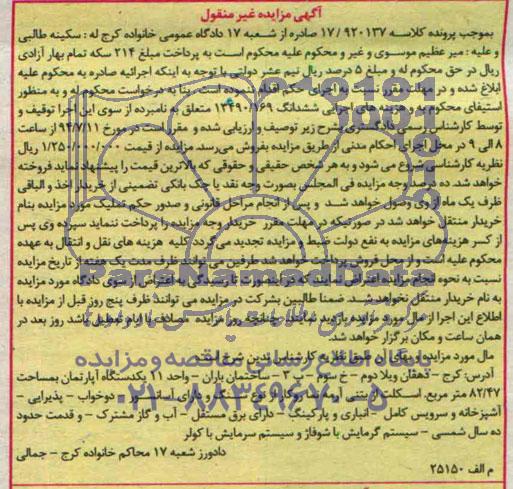 آگهی مزایده غیر منقول
بموجب پرونده کلاسه ۱۷/۹۲۰۱۳۷ صادره از شعبه ۱۷ دادگاه عمومی خانواده کرج له : سکینه طالبی
و علیه : میر عظیم موسوی و غیر و محکوم علیه محکوم است به پرداخت مبلغ ۲۱۴ سکه تمام بهار آزادی
ریال در حق محکوم له و مبلغ ۵ درصد ریال نیم عشر دولتی با توجه به اینکه اجرائیه صادره به محکوم علیه
ابلاغ شده و در مهلت مقرر نسبت به اجرای حکم اقدام ننموده است. بنا به درخواست محکوم له و به منظور
استیفای محکوم به و هزینه های اجرایی ششدانگ متعلق به نامبرده از سوی این اجرا توقیف و
توسط کارشناس رسمی دادگستری بشرح زیر توصیف و ارزیابی شده و مقرر است در مورخ ۹۴/۷/۱۱ از ساعت
۸ الی ۹ در محل اجرای احکام مدنی از طریق مزایده بفروش می‌رسد مزایده از قیمت ۱/۲۵۰/۰۰۰/۰۰۰ ریال
نظریه کارشناسی شروع می شود و به هر شخص حقیقی و حقوقی که بالاترین قیمت را پیشنهاد نماید فروخته
خواهد شد. ده درصد وجه مزایده فی المجلس بصورت وجه نقد یا چک بانکی تضمینی از خریدار اخذ و الباقی
ظرف یک ماه از وی وصول خواهد شد و پس از انجام مراحل قانونی و صدور حکم تملیک مورد مزایده بنام
خریدار منتقل خواهد شد در صورتیکه در مهلت مقرر خریدار وجه مزایده را پرداخت ننماید سپرده وی پس
از کسر هزینه‌های مزایده به نفع دولت ضبط و مزایده تجدید می گردد کلیه هزینه های نقل و انتقال به عهده
محکوم علیه است و از محل فروش پرداخت خواهد شد طرفین می توانند ظرف مدت یک هفته از تاریخ مزایده
نسبت به نحوه انجام مزایده اعتراض نمایند که در اینصورت تا رسیدگی به اعتراض از سوی دادگاه مورد مزایده
به نام خریدار منتقل نخواهد شد. ضمنا طالبین بشرکت در مزایده می توانند ظرف پنج روز قبل از مزایده با
اطلاع این اجرا از مال مورد مزایده بازدید نمایند. چنانچه روز مزایده مصادف با ایام تعطیل باشد روز بعد در
همان ساعت و مکان برگزار خواهد شد.
مال مورد مزایده و بهای آن طبق نظریه کارشناسی بدین شرح است:
آدرس: کرج - دهقان ویلا دوم - خ سوم - پ ۳ - ساختمان باران - واحد ۱۱ یکدستگاه آپارتمان بمساحت
۸۲/۴۷ متر مربع. اسکلت بتنی نما رو کار از نوع سنگ و دارای آسانسور - دو خواب - پذیرایی -
آشپزخانه و سرویس کامل - انباری و پارکینگ - دارای برق مستقل - آب و گاز مشترک - و قدمت حدود
ده سال شمسی - سیستم گرمایش با شوفاژ و سیستم سرمایش با کولر
دادورز شعبه ۱۷ محاکم خانواده کرج - جمالی
م الف ۲۵۱۵۰
ParsNamadData
پایگاه اطلاع رسانی مناقصه و مزایده
۰۲۱-۸۸۳۴۹۶۷۰-۵